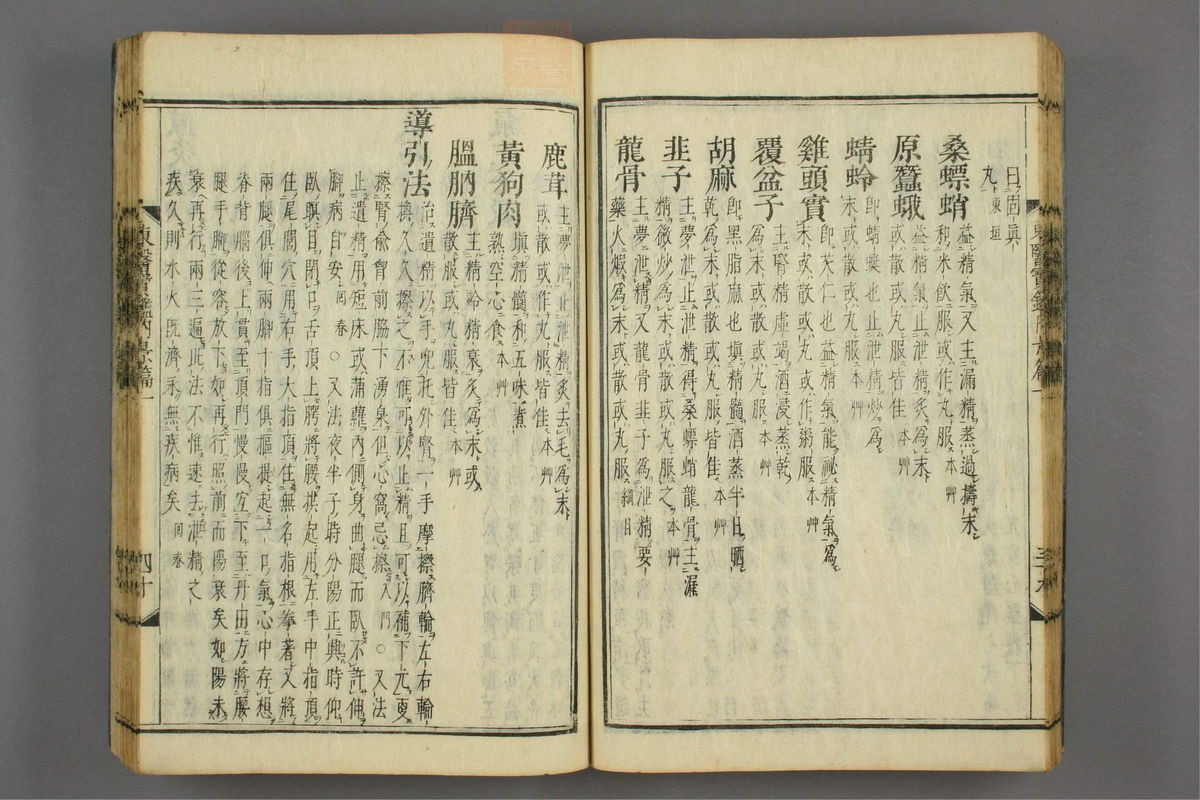 曰固眞
丸東垣
桑螵蛸 益精氣又主漏精蒸過擣末
和米飮服或作丸服本艸
原蠶蛾 益精氣止泄精炙爲末
或散或丸服皆佳本艸
蜻蛉 卽蜻蜓也止泄精炒爲
末或散或丸服本艸
雞頭實 卽芡仁也益精氣能祕精氣爲
末或散或丸或作粥服本艸
覆盆子 主腎精虛竭酒浸蒸乾
爲末或散或丸服本艸
胡麻 卽黑脂麻也塡精髓酒蒸半日晒
乾爲末或散或丸服皆佳本艸
韭子 主夢泄止泄精得桑螵蛸龍骨主漏
精微炒爲末或散或丸服之本艸
龍骨 主夢泄精又龍骨韭子爲泄精要
藥火煆爲末或散或丸服綱目
東醫寶鑑內景篇一
三十九
鹿茸 主夢泄止泄精炙去毛爲末
或散或作丸服皆佳本艸
黃狗肉 塡精髓和五味煮
熟空心食本艸
膃肭臍 主精冷精衰炙爲末或
散服或丸服皆佳本艸
導引法 治遺精以手兜托外腎一手摩擦臍輪左右輪
換久久擦之不惟可以止精且可以補下元更
擦腎兪胷前脇下湧泉但心窩忌擦入門○又法
止遺精用短床或蒲蘿內側身曲腿而臥不許伸
脚病自安回春○又法夜半子時分陽正興時仰
臥瞑目閉口舌頂上腭將腰拱起用左手中指頂
住尾閭穴用右手大指頂住無名指根拳著又將
兩腿俱伸兩脚十指俱摳提起一口氣心中存想
脊背腦後上貫至頂門慢慢直下至丹田方將腰
腿手脚從容放下如再行照前而陽衰矣如陽未
衰再行兩三遍此法不惟速去泄精之
疾久則水火旣濟永無疾病矣回春
東醫寶鑑內景篇一
四十